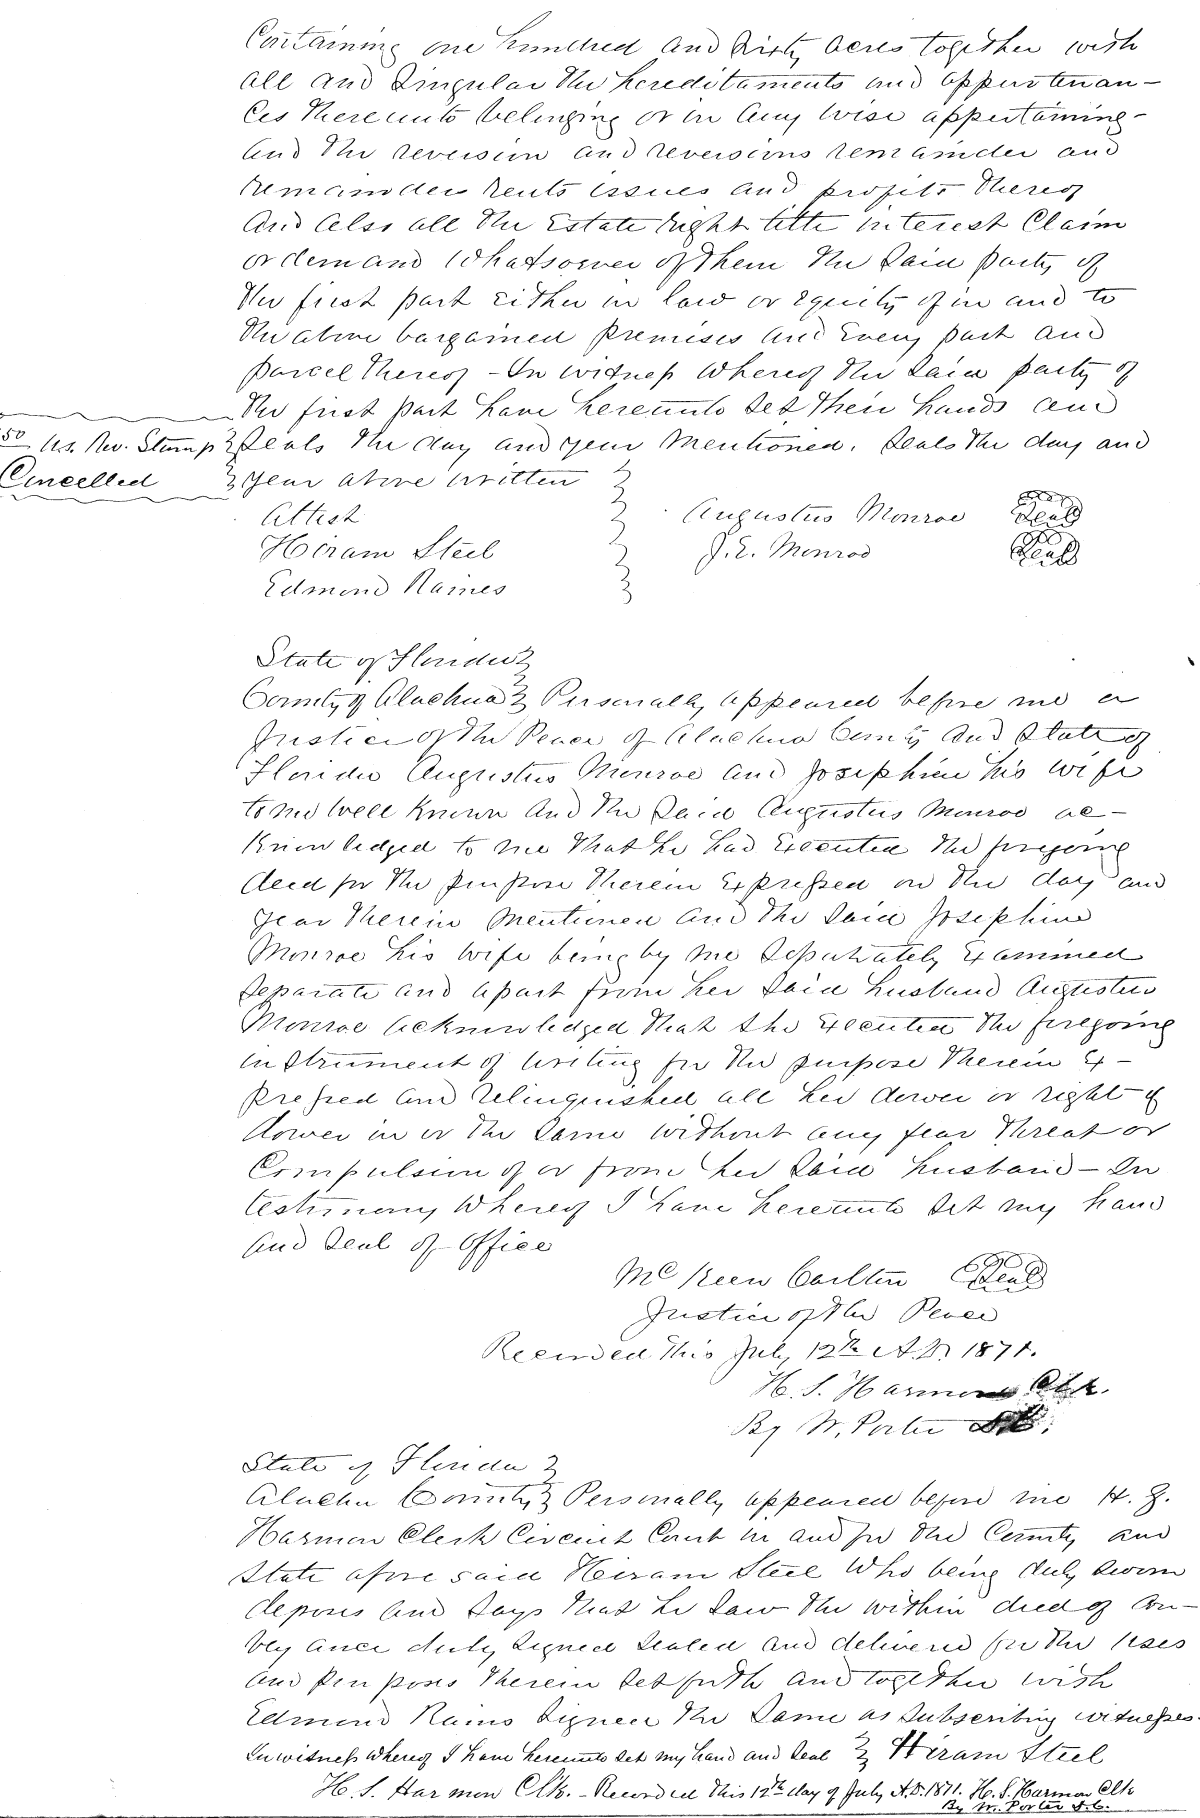 Containing one hundred and Sixty acres together with
all and Singular the hereditaments and appurtenan-
ces thereunto belonging or in any wise appertaining-
and the reversion and reversions remainder and
remainder rents issues and profits thereof
and also all the Estate right title interest Claim
or demand Whatsoever of them the Said party of
the first part Either in law or equity of in and to
the above bargained premises and Every part and
parcel thereof - In witness Whereof the Said party of
the first part have hereunto Set their hands and
50 U.S. Rev. Stamp Seals the day and year mentioned. Seals the day and
Cancelled year above written
Attest Augustus Monroe Seal
Hiram Steel J. E. Monroe Seal
Edmond Raines
State of Florida
County of Alachua Personally appeared before me a
Justice of the Peace of Alachua County and State of
Florida Augustus Monroe and Josephine his wife
to me well Known and the Said Augustus Monroe ac-
knowledged to me that he had Executed the foregoing
deed for the purpose therein Expressed on the day and
year therein mentioned and the Said Josephine
Monroe his wife being by me Separately Examined
Separate and apart from her Said husband Augustus
Monroe acknowledged that She Executed the foregoing
instrument of writing for the purpose therein Ex-
pressed and relinquished all her dower or right of
dower in or the Same without any fear threat or
Compulsion of or from her Said husband - In
testimony Whereof I have hereunto Set my hand
and Seal of Office
McKeen Carlton Seal
Justice of the Peace
Recorded this July 12th A.D. 1871.
H. S. Harmon Clk.
By W. Porter
State of Florida
Alachua County Personally appeared before me H. S.
Harmon Clerk Circuit Court in and for the County and
State afore said Hiram Steel Who being duly Sworn
deposes and Says that he Saw the within deed of Con-
vey ance duly Signed Sealed and delivered for the Uses
and purposes therein Set forth and together with
Edmond Rains Signed the Same as Subscribing witnesses.
In witness Whereof I have hereunto Set my hand and Seal Hiram Steel
H. S. Harmon Clk. - Recorded this 12th day of July A.D. 1871. H. S. Harmon Clk
By W. Porter D.C.